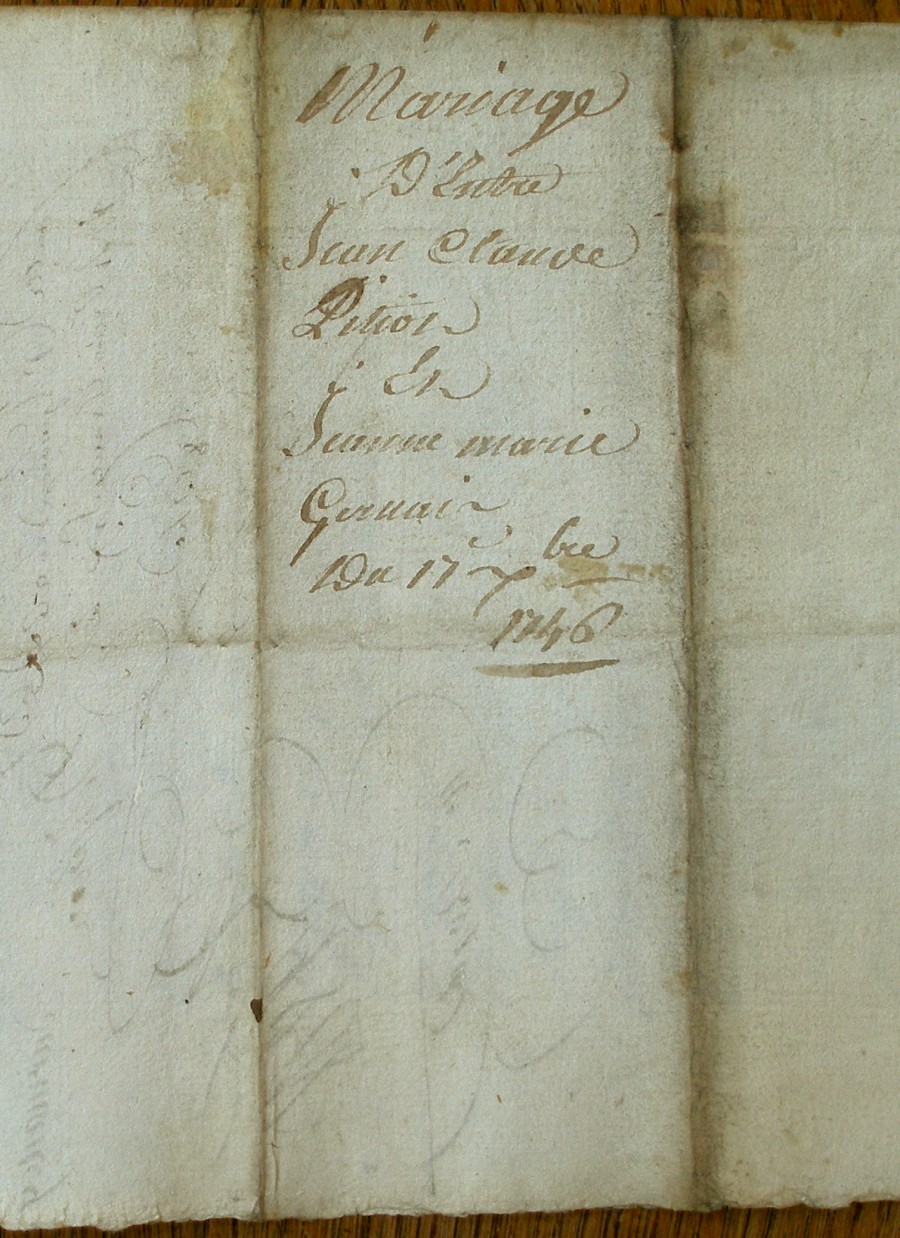 Mariage
D'Entre
Jean Claude
Pition
Et
Jeanne marie
Gervais
Du 17e xbre
1746